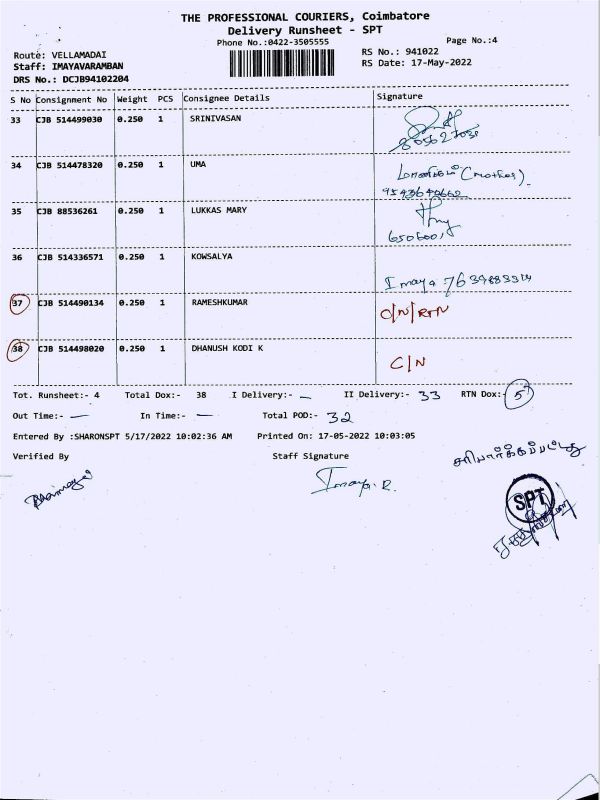 THE PROFESSIONAL COURIERS, Coimbatore
Delivery Runsheet - SPT
Phone No.:0422-3505555
Page No.:4
Route: VELLAMADAI
RS No.: 941022
Staff: IMAYAVARAMBAN
RS Date: 17-May-2022
DRS No.: DCJB94102204
S No Consignment No Weight PCS Consignee Details Signature
33 CJB 514499030 0.250 1 SRINIVASAN
34 CJB 514478320 0.250 1 UMA (mother)
35 CJB 88536261 0.250 1 LUKKAS MARY
36 CJB 514336571 0.250 1 KOWSALYA Imaya
37 CJB 514490134 0.250 1 RAMESHKUMAR O/N/RTN
38 CJB 514498020 0.250 1 DHANUSH KODI K C/N
Tot. Runsheet:- 4 Total Dox:- 38 I Delivery:- — II Delivery:- 33 RTN Dox:- 5
Out Time:- — In Time:- — Total POD:- 32
Entered By :SHARONSPT 5/17/2022 10:02:36 AM Printed On: 17-05-2022 10:03:05
Verified By Staff Signature
சரிபார்க்கப்பட்டது
Imaya.R.
SPT